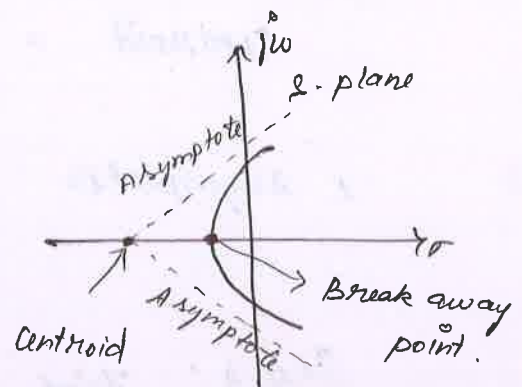 jω
s-plane
Asymptote
σ
Break away
point.
Asymptote
Centroid